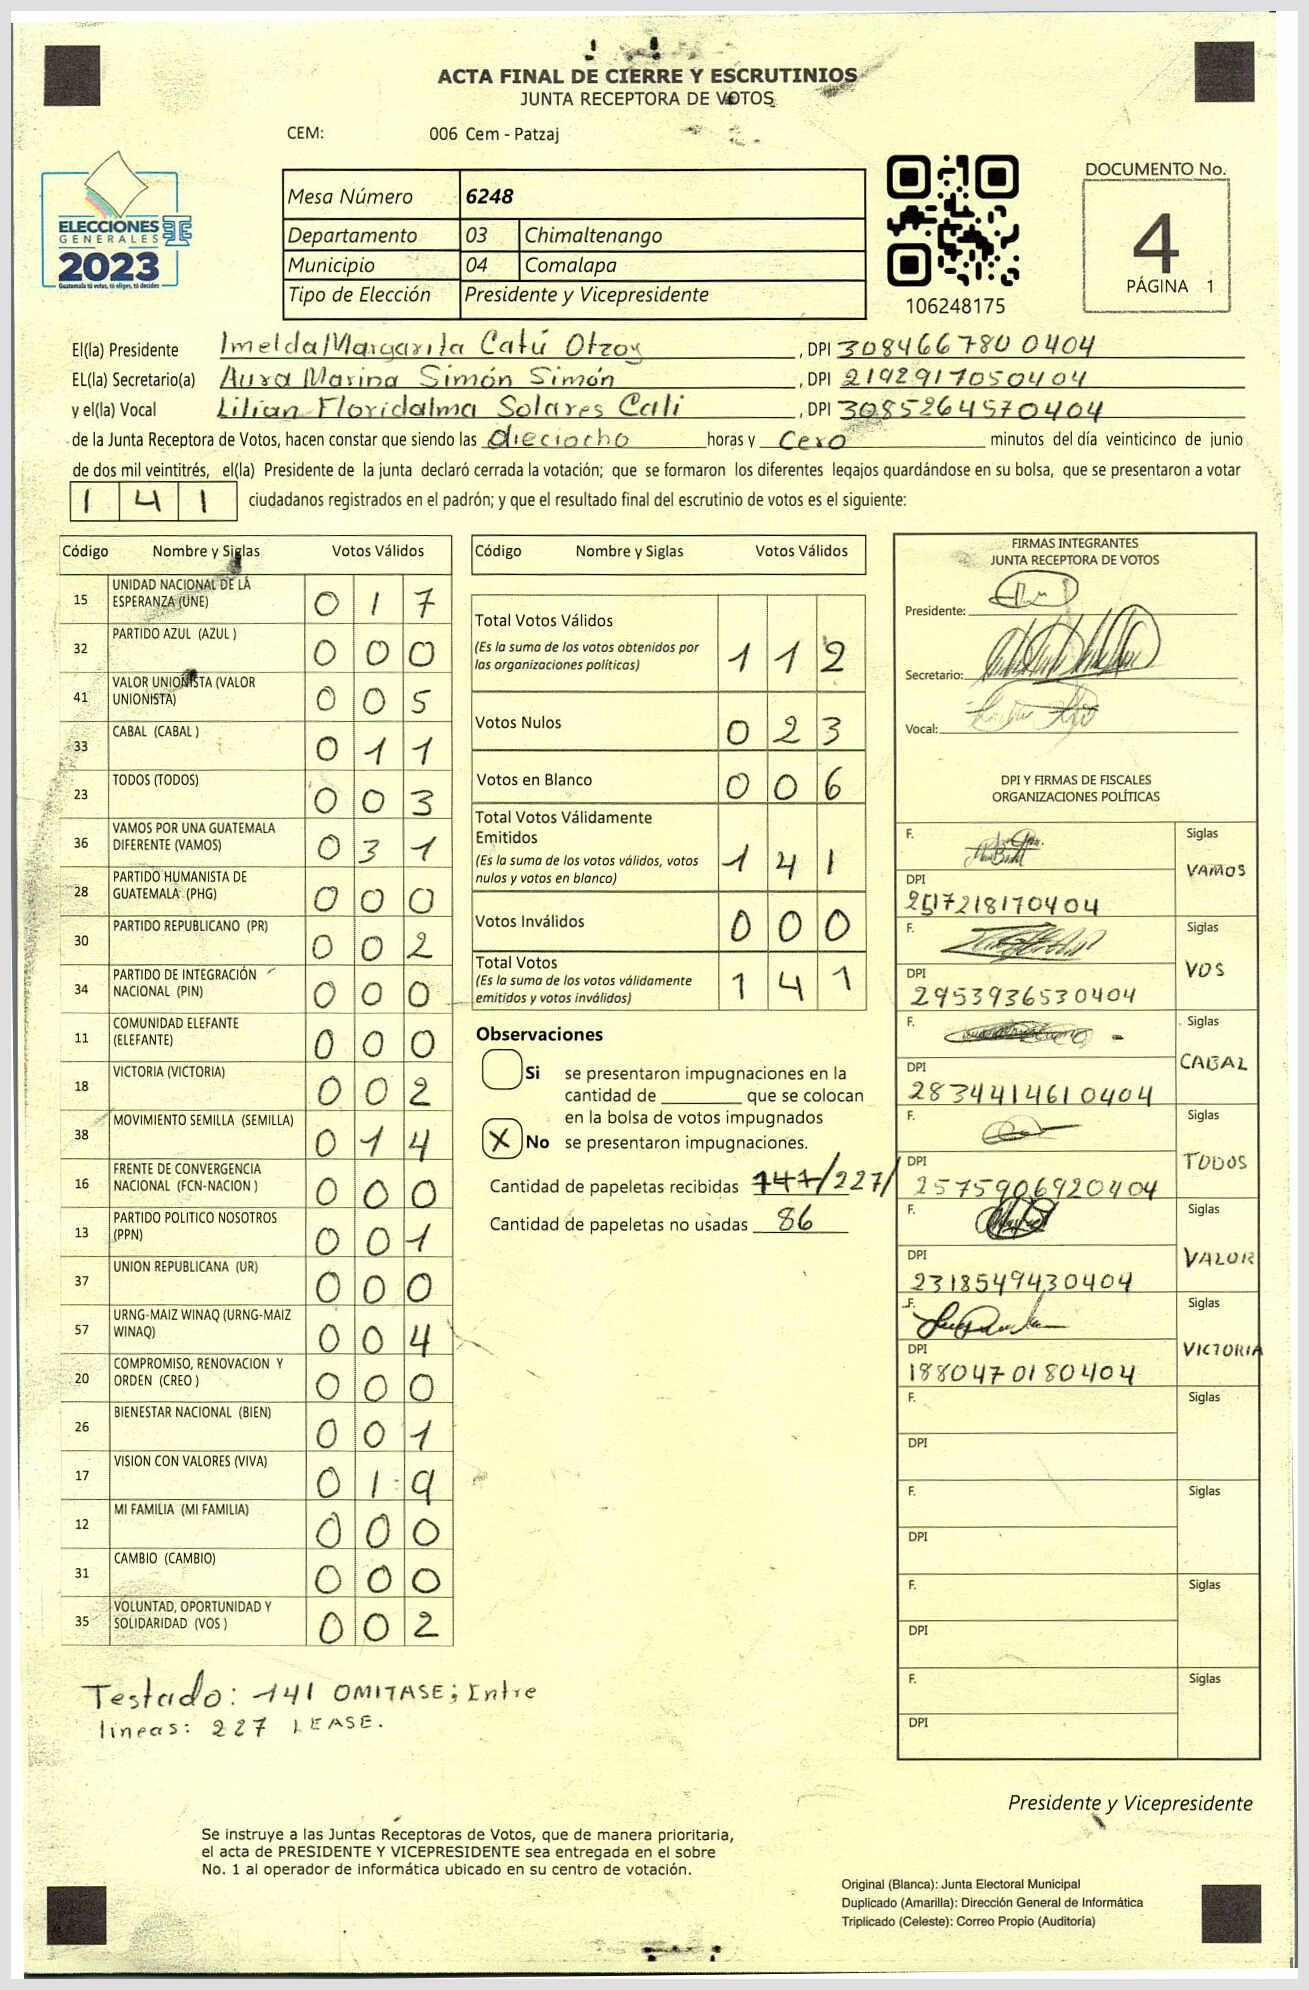 ACTA FINAL DE CIERRE Y ESCRUTINIOS
JUNTA RECEPTORA DE VOTOS
CEM: 006 Cem - Patzaj
ELECCIONES
GENERALES
2023
Guatemala tú votas, tú eliges, tú decides
Mesa Número 6248
Departamento 03 Chimaltenango
Municipio 04 Comalapa
Tipo de Elección Presidente y Vicepresidente
106248175
DOCUMENTO No.
4
PÁGINA 1
El(la) Presidente Imelda Margarita Catú Otzoy, DPI 3084667800404
EL(la) Secretario(a) Aura Marina Simón Simón, DPI 2192917050404
y el(la) Vocal Lilian Floridalma Solares Cali, DPI 3085264570404
de la Junta Receptora de Votos, hacen constar que siendo las dieciocho horas y Cero minutos del día veinticinco de junio
de dos mil veintitrés, el(la) Presidente de la junta declaró cerrada la votación; que se formaron los diferentes legajos quardándose en su bolsa, que se presentaron a votar
141 ciudadanos registrados en el padrón; y que el resultado final del escrutinio de votos es el siguiente:
Código Nombre y Siglas Votos Válidos
15 UNIDAD NACIONAL DE LA ESPERANZA (UNE) 0 1 7
32 PARTIDO AZUL (AZUL ) 0 0 0
41 VALOR UNIONISTA (VALOR UNIONISTA) 0 0 5
33 CABAL (CABAL ) 0 1 1
23 TODOS (TODOS) 0 0 3
36 VAMOS POR UNA GUATEMALA DIFERENTE (VAMOS) 0 3 1
28 PARTIDO HUMANISTA DE GUATEMALA (PHG) 0 0 0
30 PARTIDO REPUBLICANO (PR) 0 0 2
34 PARTIDO DE INTEGRACIÓN NACIONAL (PIN) 0 0 0
11 COMUNIDAD ELEFANTE (ELEFANTE) 0 0 0
18 VICTORIA (VICTORIA) 0 0 2
38 MOVIMIENTO SEMILLA (SEMILLA) 0 1 4
16 FRENTE DE CONVERGENCIA NACIONAL (FCN-NACION ) 0 0 0
13 PARTIDO POLITICO NOSOTROS (PPN) 0 0 1
37 UNION REPUBLICANA (UR) 0 0 0
57 URNG-MAIZ WINAQ (URNG-MAIZ WINAQ) 0 0 4
20 COMPROMISO, RENOVACION Y ORDEN (CREO ) 0 0 0
26 BIENESTAR NACIONAL (BIEN) 0 0 1
17 VISION CON VALORES (VIVA) 0 1 9
12 MI FAMILIA (MI FAMILIA) 0 0 0
31 CAMBIO (CAMBIO) 0 0 0
35 VOLUNTAD, OPORTUNIDAD Y SOLIDARIDAD (VOS ) 0 0 2
Testado: 141 OMITASE; Entre
lineas: 227 LEASE.
Código Nombre y Siglas Votos Válidos
Total Votos Válidos 1 1 2
(Es la suma de los votos obtenidos por
las organizaciones políticas)
Votos Nulos 0 2 3
Votos en Blanco 0 0 6
Total Votos Válidamente
Emitidos 1 4 1
(Es la suma de los votos válidos, votos
nulos y votos en blanco)
Votos Inválidos 0 0 0
Total Votos 1 4 1
(Es la suma de los votos válidamente
emitidos y votos inválidos)
Observaciones
Si se presentaron impugnaciones en la
cantidad de ________ que se colocan
en la bolsa de votos impugnados
X No se presentaron impugnaciones.
Cantidad de papeletas recibidas 141/227/
Cantidad de papeletas no usadas 86
FIRMAS INTEGRANTES
JUNTA RECEPTORA DE VOTOS
Presidente:
Secretario:
Vocal:
DPI Y FIRMAS DE FISCALES
ORGANIZACIONES POLÍTICAS
F. Siglas
VAMOS
DPI
2517218170404
F. Siglas
VOS
DPI
2953936530404
F. Siglas
CABAL
DPI
2834414610404
F. Siglas
TODOS
DPI
2575906920404
F. Siglas
VALOR
DPI
2318549430404
F. Siglas
VICTORIA
DPI
1880470180404
F. Siglas
DPI
F. Siglas
DPI
F. Siglas
DPI
F. Siglas
DPI
Presidente y Vicepresidente
Se instruye a las Juntas Receptoras de Votos, que de manera prioritaria,
el acta de PRESIDENTE Y VICEPRESIDENTE sea entregada en el sobre
No. 1 al operador de informática ubicado en su centro de votación.
Original (Blanca): Junta Electoral Municipal
Duplicado (Amarilla): Dirección General de Informática
Triplicado (Celeste): Correo Propio (Auditoría)